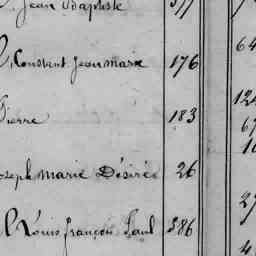 Jean Baptiste 377
Constant Jean marie 176
Pierre 183
Joseph marie Désiré 26
Louis françois Paul 386
64
124
67
27